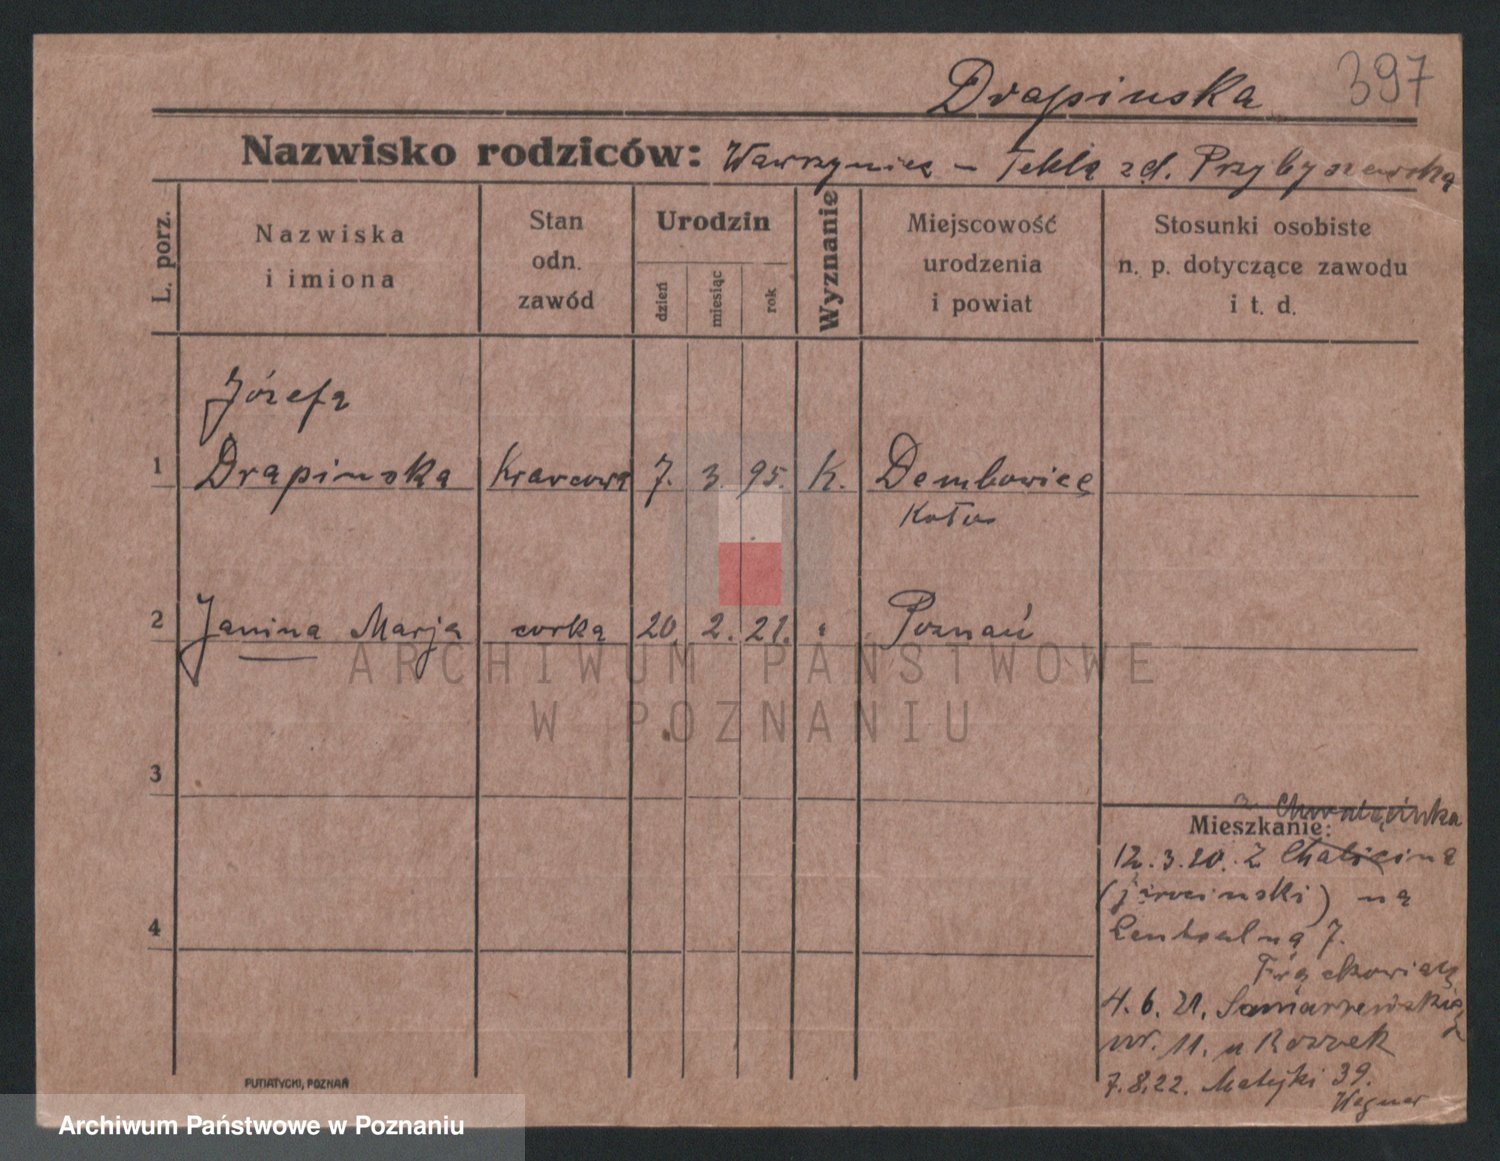 Drapinska 397
Nazwisko rodziców: Wawrzyniec - Tekla zd. Przybyszewska
L. porz.
Nazwiska
i imiona
Stan
odn.
zawód
Urodzin
dzień
miesiąc
rok
Wyznanie
Miejscowość
urodzenia
i powiat
Stosunki osobiste
n. p. dotyczące zawodu
i t. d.
Józefa
1 Drapinska Krawcowa 7. 3. 95. K. Dembowice
Koło
2 Janina Marja corka 20. 2. 21. Poznań
ARCHIWUM PAŃSTWOWE
W POZNANIU
3
Mieszkanie:
12.3.20. Z
(jarocinski) na
4
Centralną 7.
Frąckowiak
4.6.21. Samarzewskiego
nr. 11. u
7.8.22. Matejki 39.
Wegner
PUTIATYCKI, POZNAŃ
Archiwum Państwowe w Poznaniu